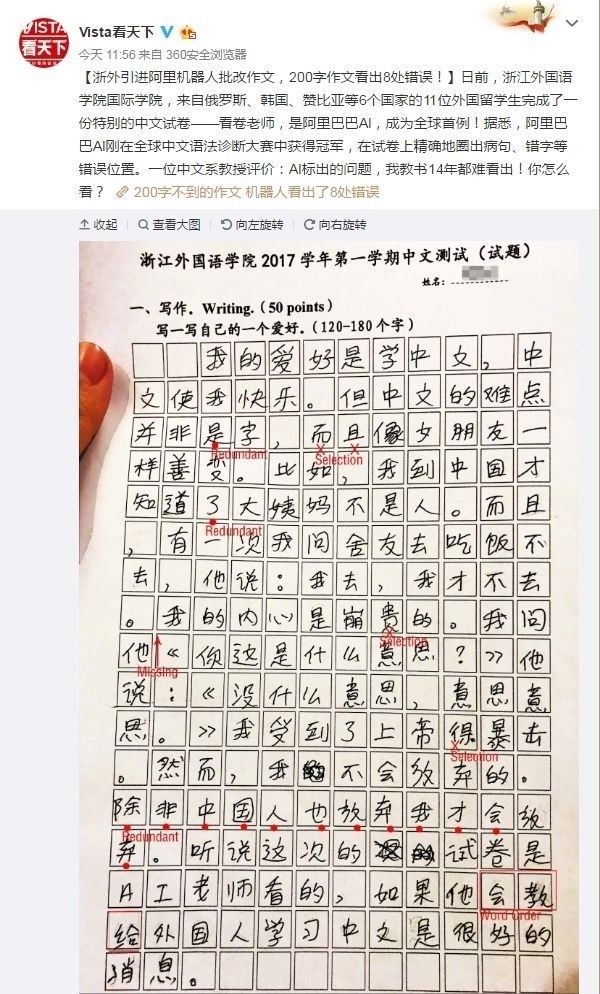 VISTA
看天下
Vista看天下
今天 11:56 来自 360安全浏览器
【浙外引进阿里机器人批改作文，200字作文看出8处错误！】日前，浙江外国语
学院国际学院，来自俄罗斯、韩国、赞比亚等6个国家的11位外国留学生完成了一
份特别的中文试卷——看卷老师，是阿里巴巴AI，成为全球首例！据悉，阿里巴
巴AI刚在全球中文语法诊断大赛中获得冠军，在试卷上精确地圈出病句、错字等
错误位置。一位中文系教授评价：AI标出的问题，我教书14年都难看出！你怎么
看？ 200字不到的作文 机器人看出了8处错误
收起 查看大图 向左旋转 向右旋转
浙江外国语学院 2017 学年第一学期中文测试（试题）
姓名：
一、写作。Writing.（50 points）
写一写自己的一个爱好。（120-180 个字）
我的爱好是学中文，中
文使我快乐。但中文的难点
并非是字，而且像女朋友一
Redundant Selection
样善变。比如，我到中国才
知道了大姨妈不是人。而且
Redundant
，有一次我问舍友去吃饭不
去，他说：我去，我才不去
。我的内心是崩贵的。我问
Selection
他《你这是什么意思？》他
Missing
说：《没什么意思，意思意
思。》我受到了上帝得暴击
Selection
。然而，我不会放弃的。
除非中国人也放弃我才会放
Redundant
弃。听说这次的试卷是
AI老师看的，如果他会教
Word Order
给外国人学习中文是很好的
消息。